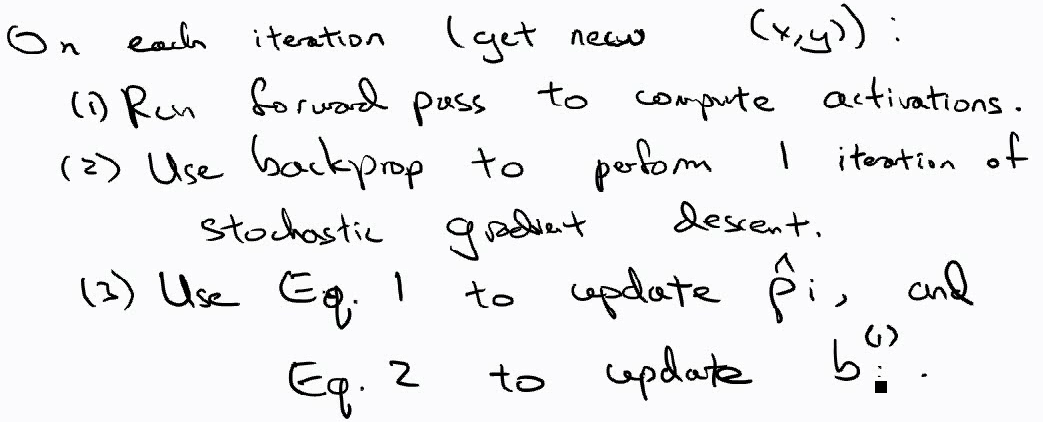 On each iteration (get new (x,y)):
(1) Run forward pass to compute activations.
(2) Use backprop to perform 1 iteration of
stochastic gradient descent.
(3) Use Eq. 1 to update ρ̂i, and
Eq. 2 to update bᵢ⁽¹⁾.